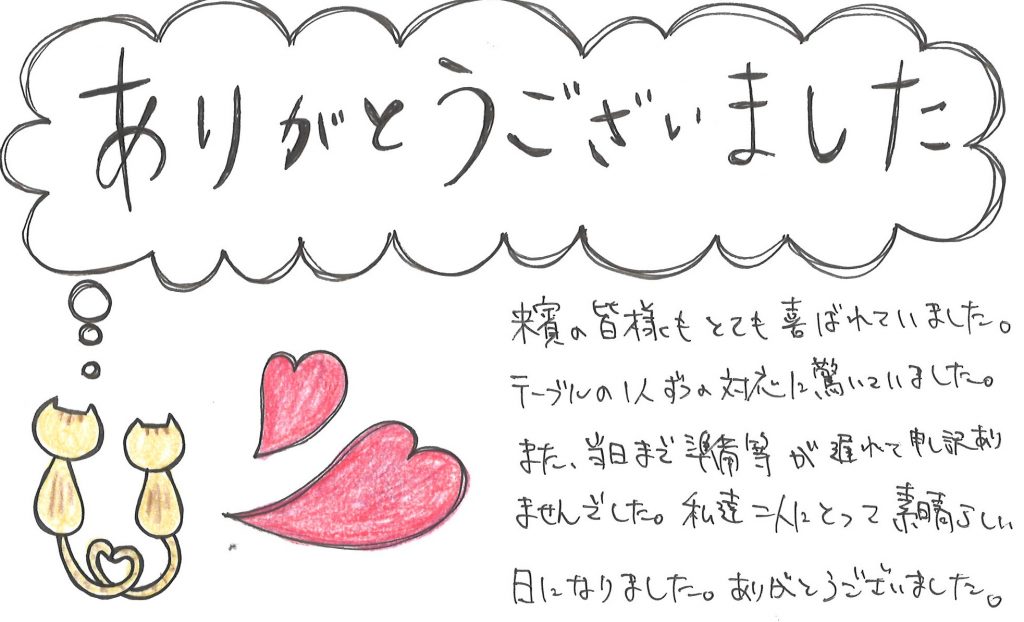 ありがとうございました
来賓の皆様もとても喜ばれていました。
テーブルの1人ずつの対応に驚いていました。
また、当日まで準備等が遅れて申し訳あり
ませんでした。私達二人にとって素晴らしい
日になりました。ありがとうございました。